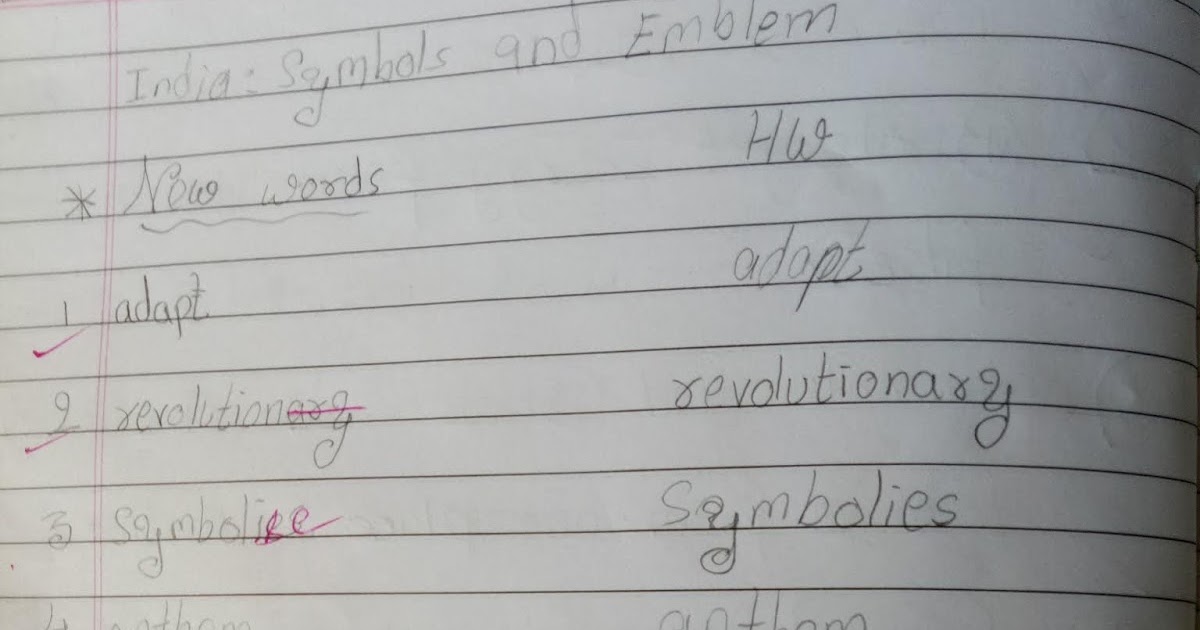 India: Symbols and Emblem
HW
* New words
1 adapt adapt
2 revolutionary revolutionary
3 symbolise Symbolies
4 anthem anthem